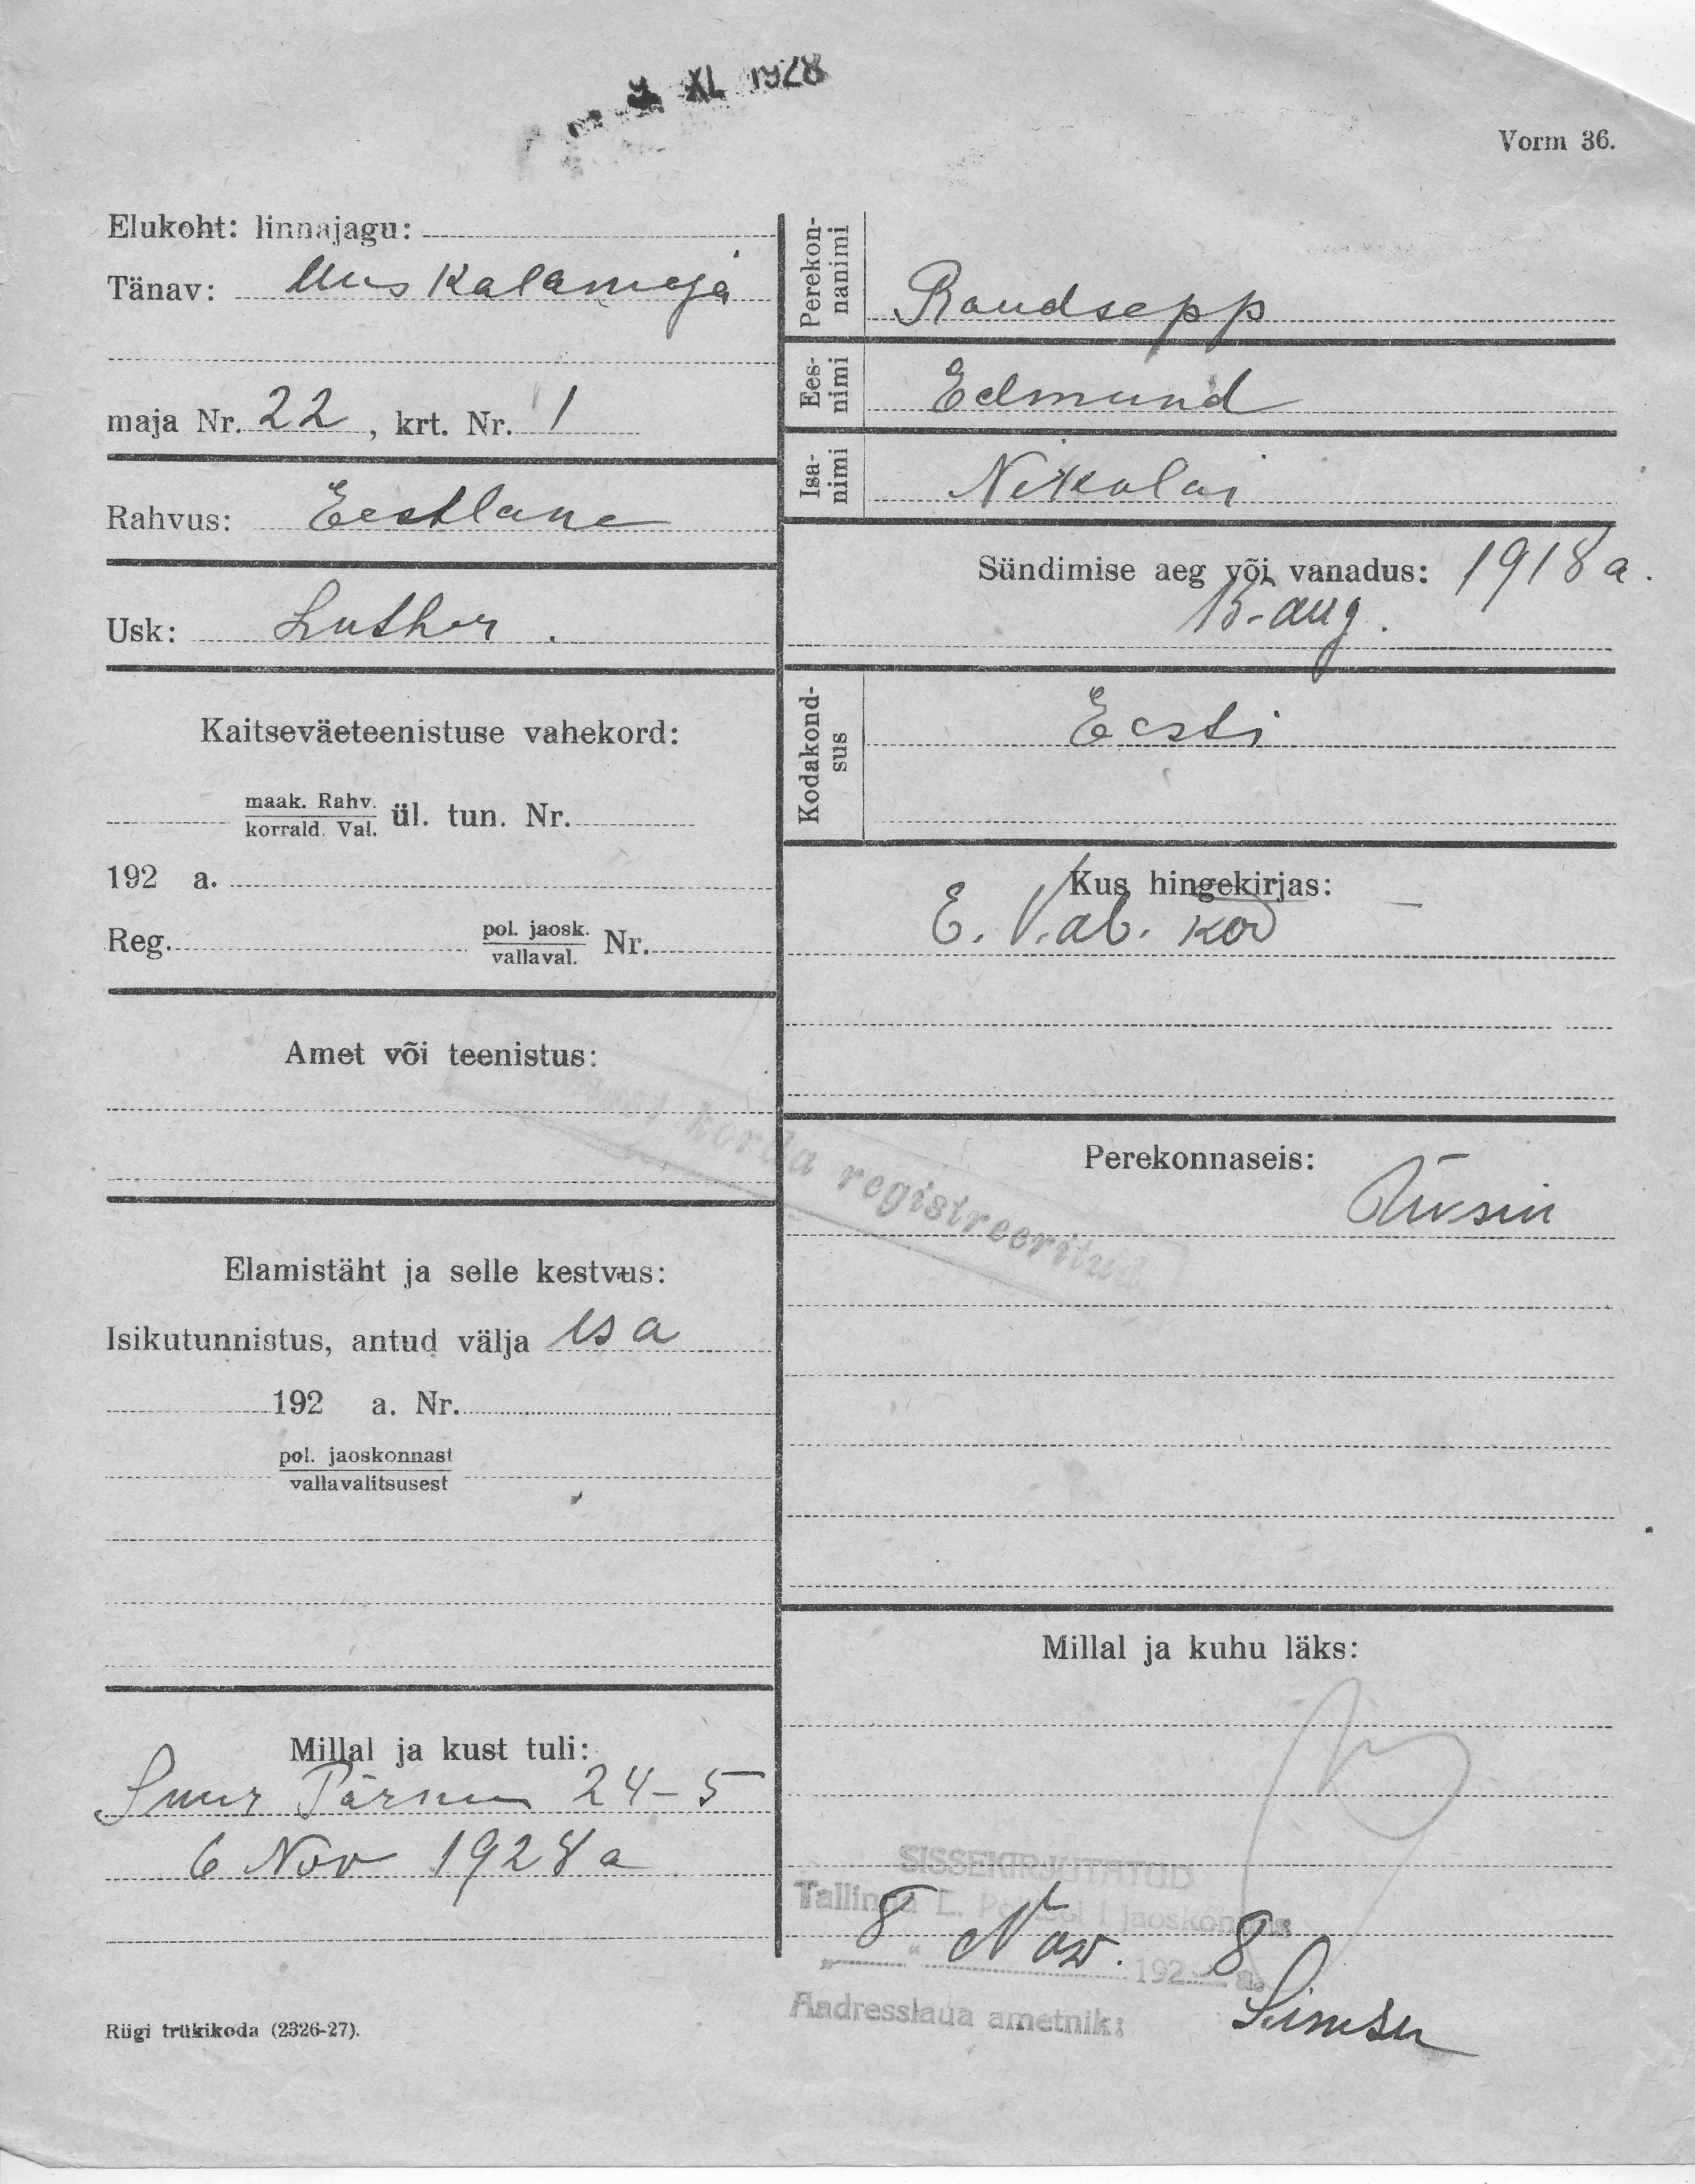 XI 1928
Vorm 36.
Elukoht: linnajagu:
Tänav: Uus Kalamaja
maja Nr. 22, krt. Nr. 1
Rahvus: Eestlane
Usk: Luther.
Kaitseväeteenistuse vahekord:
maak. Rahv.
korrald. Val. ül. tun. Nr.
192 a.
Reg. pol. jaosk.
vallaval. Nr.
Amet või teenistus:
Elamistäht ja selle kestvus:
Isikutunnistus, antud välja Isa
192 a. Nr.
pol. jaoskonnast
vallavalitsusest
Millal ja kust tuli:
Suur Pärnu 24-5
6 Nov 1928 a
Riigi trükikoda (2326-27).
Perekon-
nanimi
Raudsepp
Ees-
nimi
Edmund
Isa-
nimi
Nikolai
Sündimise aeg või vanadus: 1918 a.
15-aug.
Kodakond-
sus
Eesti
Kus hingekirjas:
E. Vab. kod
korda registreeritud
Perekonnaseis:
Üksin
Millal ja kuhu läks:
SISSEKIRJUTATUD
Tallinna L. Politsei I jaoskonnas
„8“ Nov. 1928 a.
Aadresslaua ametnik: